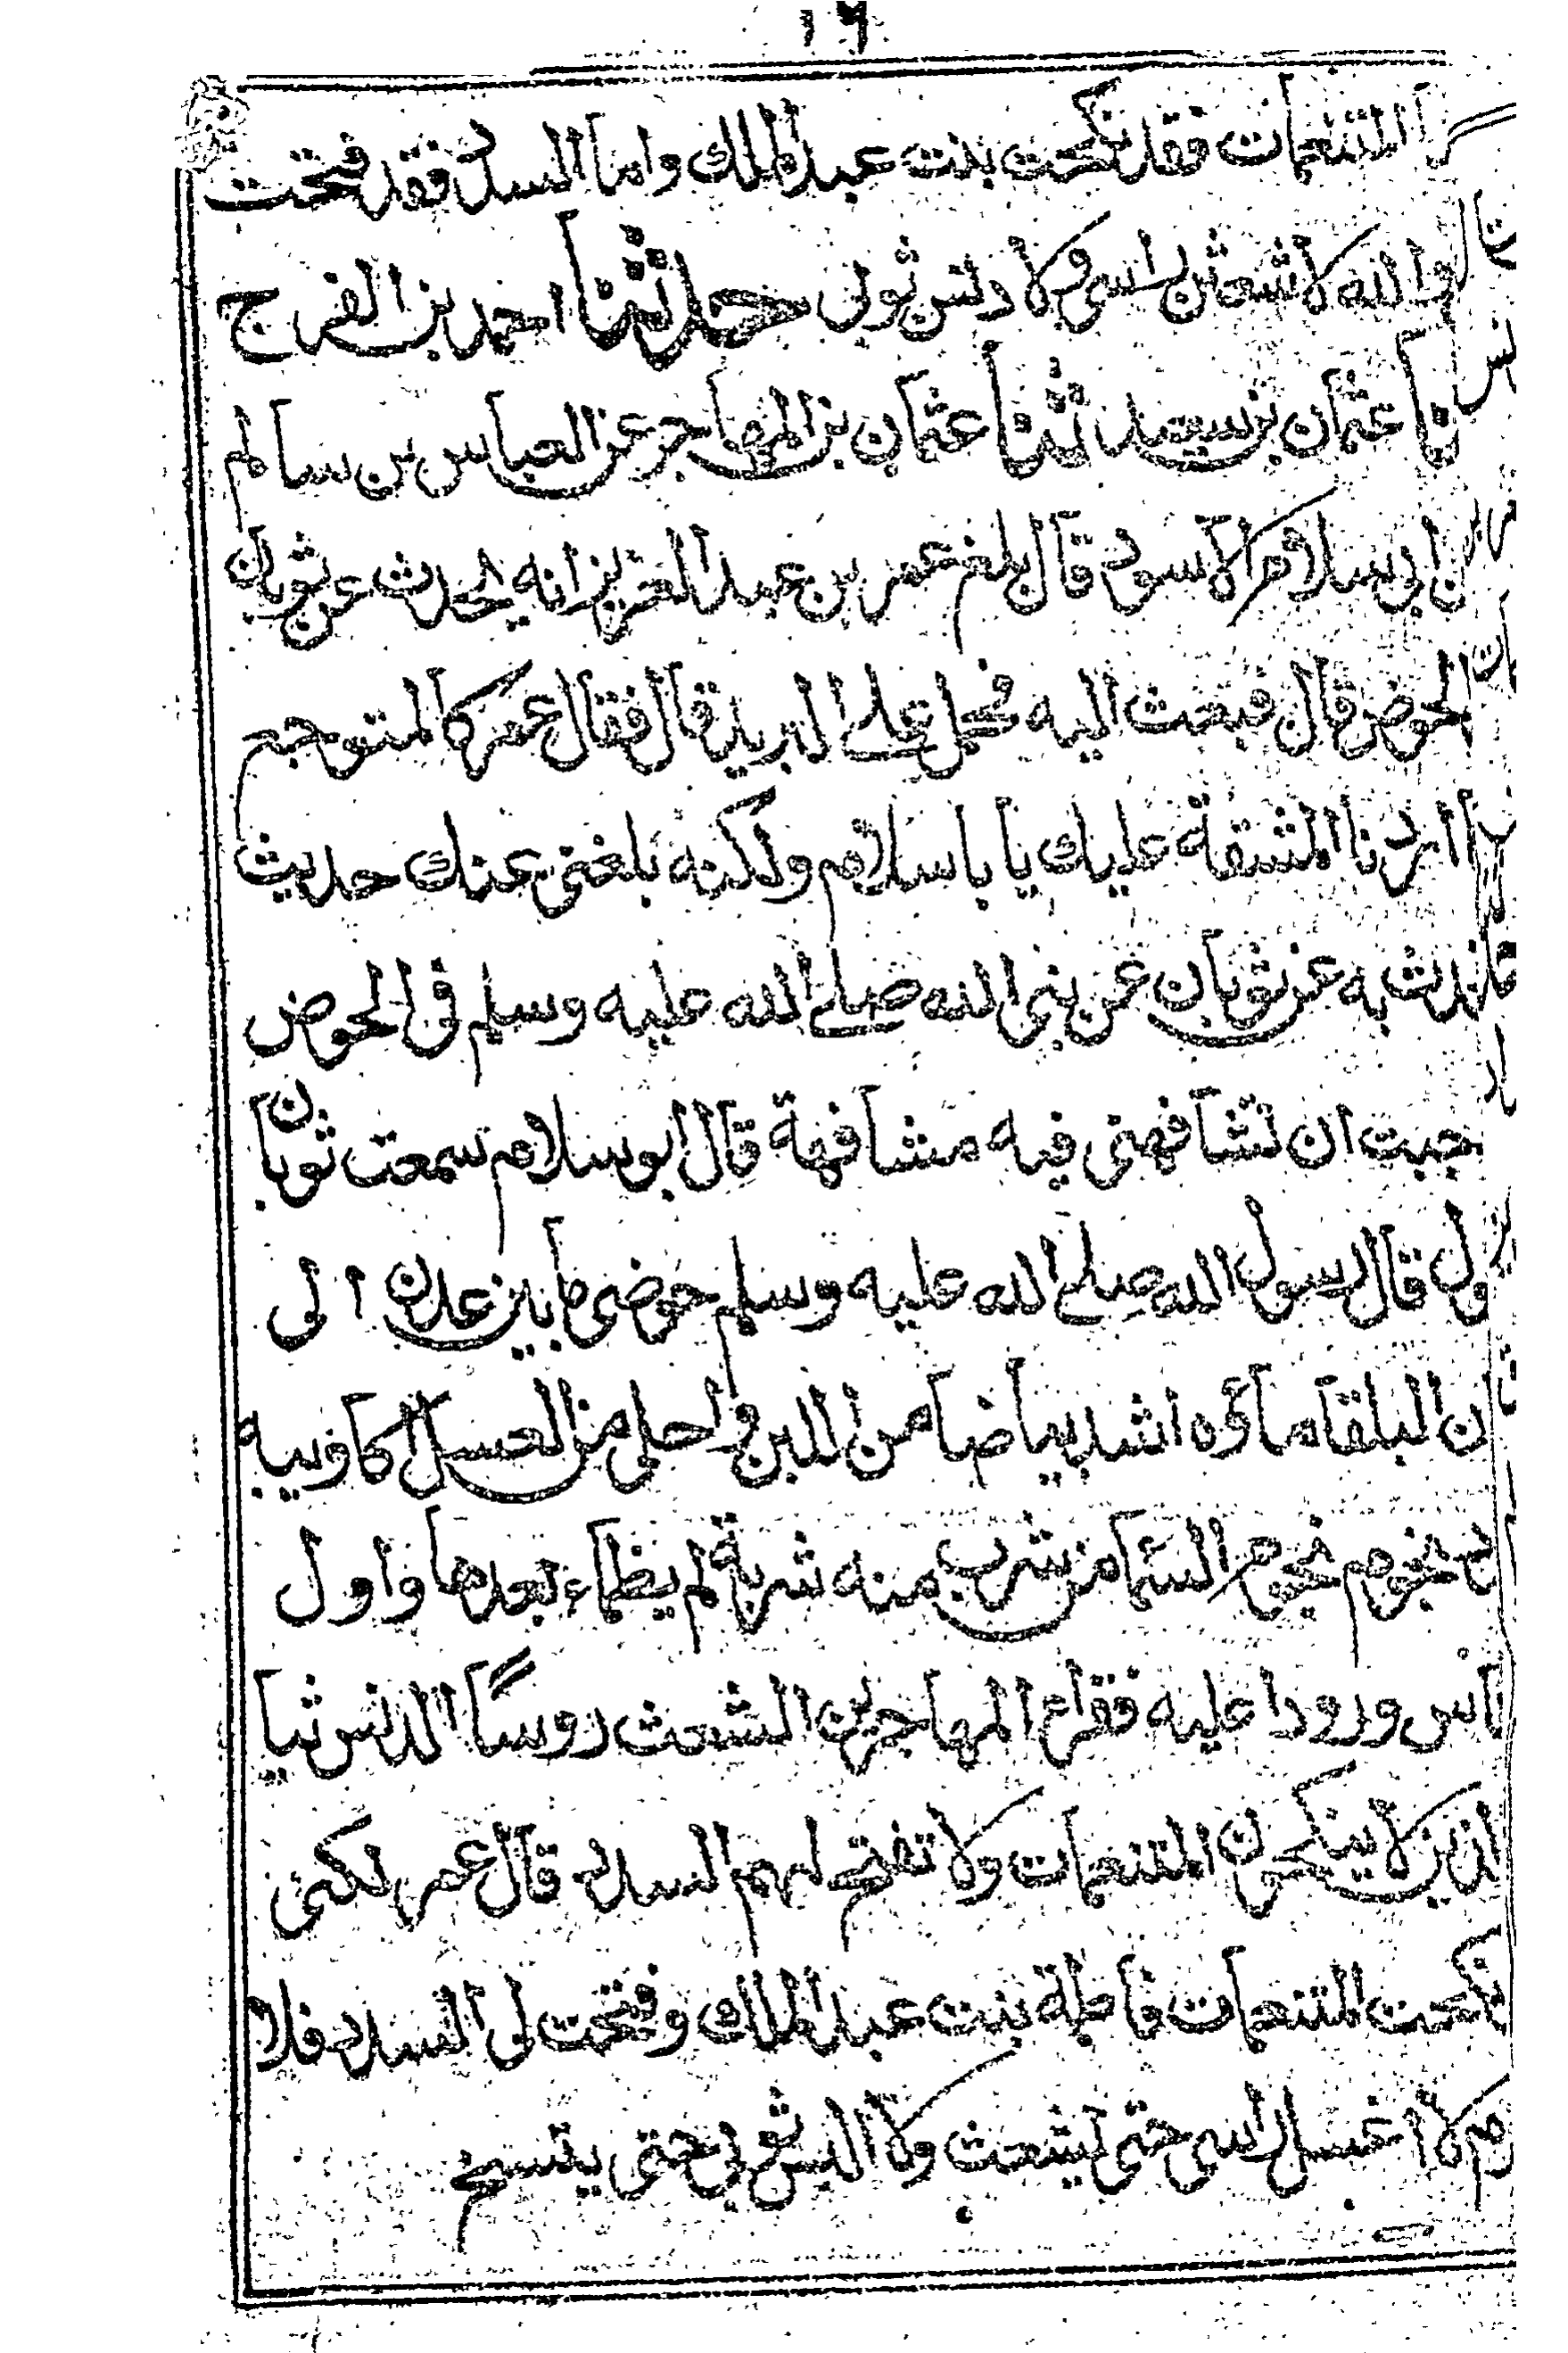 ١٩
المتنعمات فقد نكحت بنت عبد الملك واما السدد فقد فتحت
والله لاشعثن راسى ولادنس ثوبى حدثنا احمد بن الفرج
ثنا عثمان بن سعيد ثنا عثمان بن المهاجر عن العباس بن سالم
ن ابى سلام الاسود قال بلغ عمر بن عبد العزيز انه يحدث عن ثوبان
الحوض قال فبعث اليه فحمل على البريد قال فقال عمر كالمتوجع
اردنا المشقة عليك يا با سلام ولكنه بلغنى عنك حديث
به عن ثوبان عن نبى الله صلى الله عليه وسلم فى الحوض
جبت ان تشافهنى فيه مشافهة قال ابو سلام سمعت ثوبان
ول قال رسول الله صلى الله عليه وسلم حوضى ما بين عدن الى
ن البلقا ماؤه اشد بياضا من اللبن واحلى من العسل اكاويبه
نجوم السما من شرب منه شربة لم يظماء بعدها واول
ناس ورودا عليه فقراء المهاجرين الشعث روسا الدنس ثيا
الذين لا ينكحون المتنعمات ولا تفتح لهم السدد قال عمر لكنى
نكحت المتنعمات فاطمة بنت عبد الملك وفتحت لى السدد فلا
لا اغسل راسى حتى يشعث ولا الدنس ثوبى حتى يتسخ